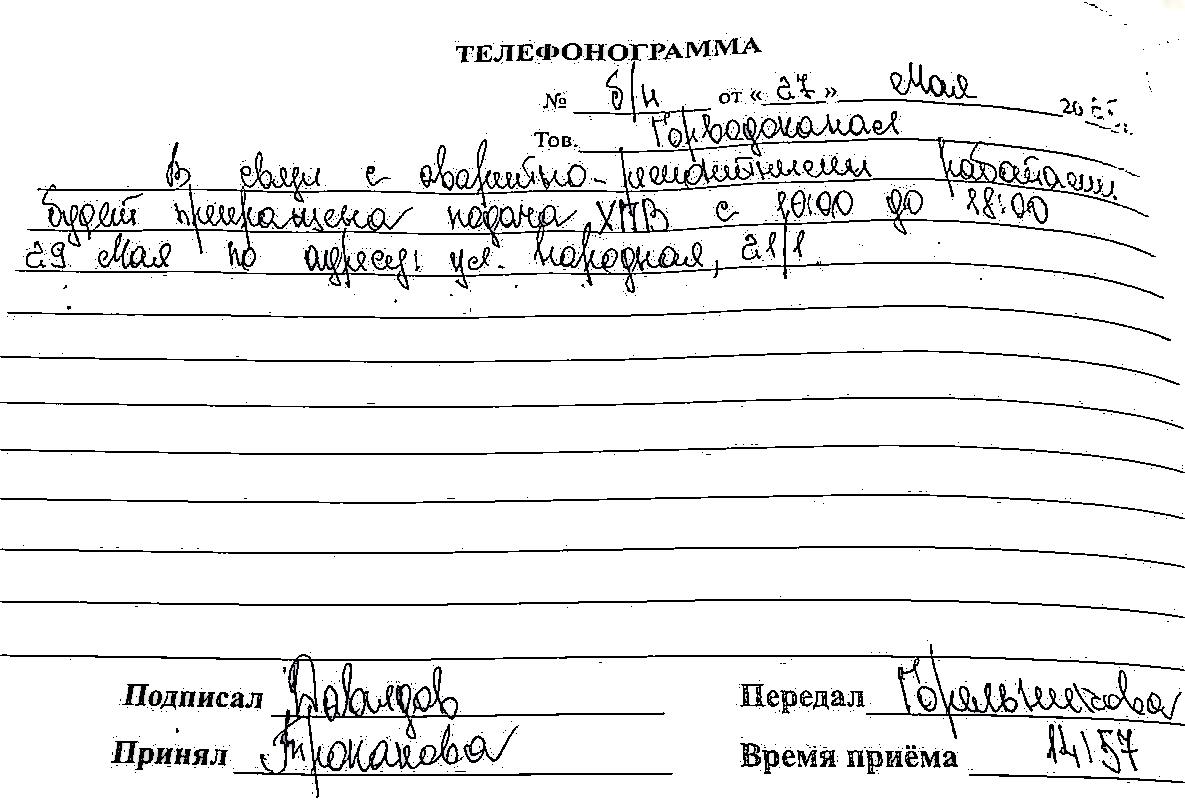 ТЕЛЕФОНОГРАММА
№ б/н от «27» Мая 2025 г.
Тов. Горводоканал
В связи с аварийно-ремонтными работами
будет прекращена подача ХПВ с 10:00 до 18:00
29 Мая по адресу: ул. Народная, 21/1.
Подписал Давыдов
Передал Горельникова
Принял
Время приёма 14:57